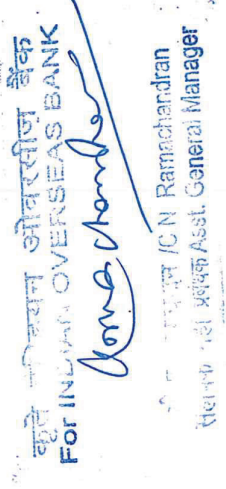 कृते इंडियन ओवरसीज़ बैंक
For INDIAN OVERSEAS BANK
Rama Chandran
/C N Ramachandran
सहायक महा प्रबंधक Asst. General Manager